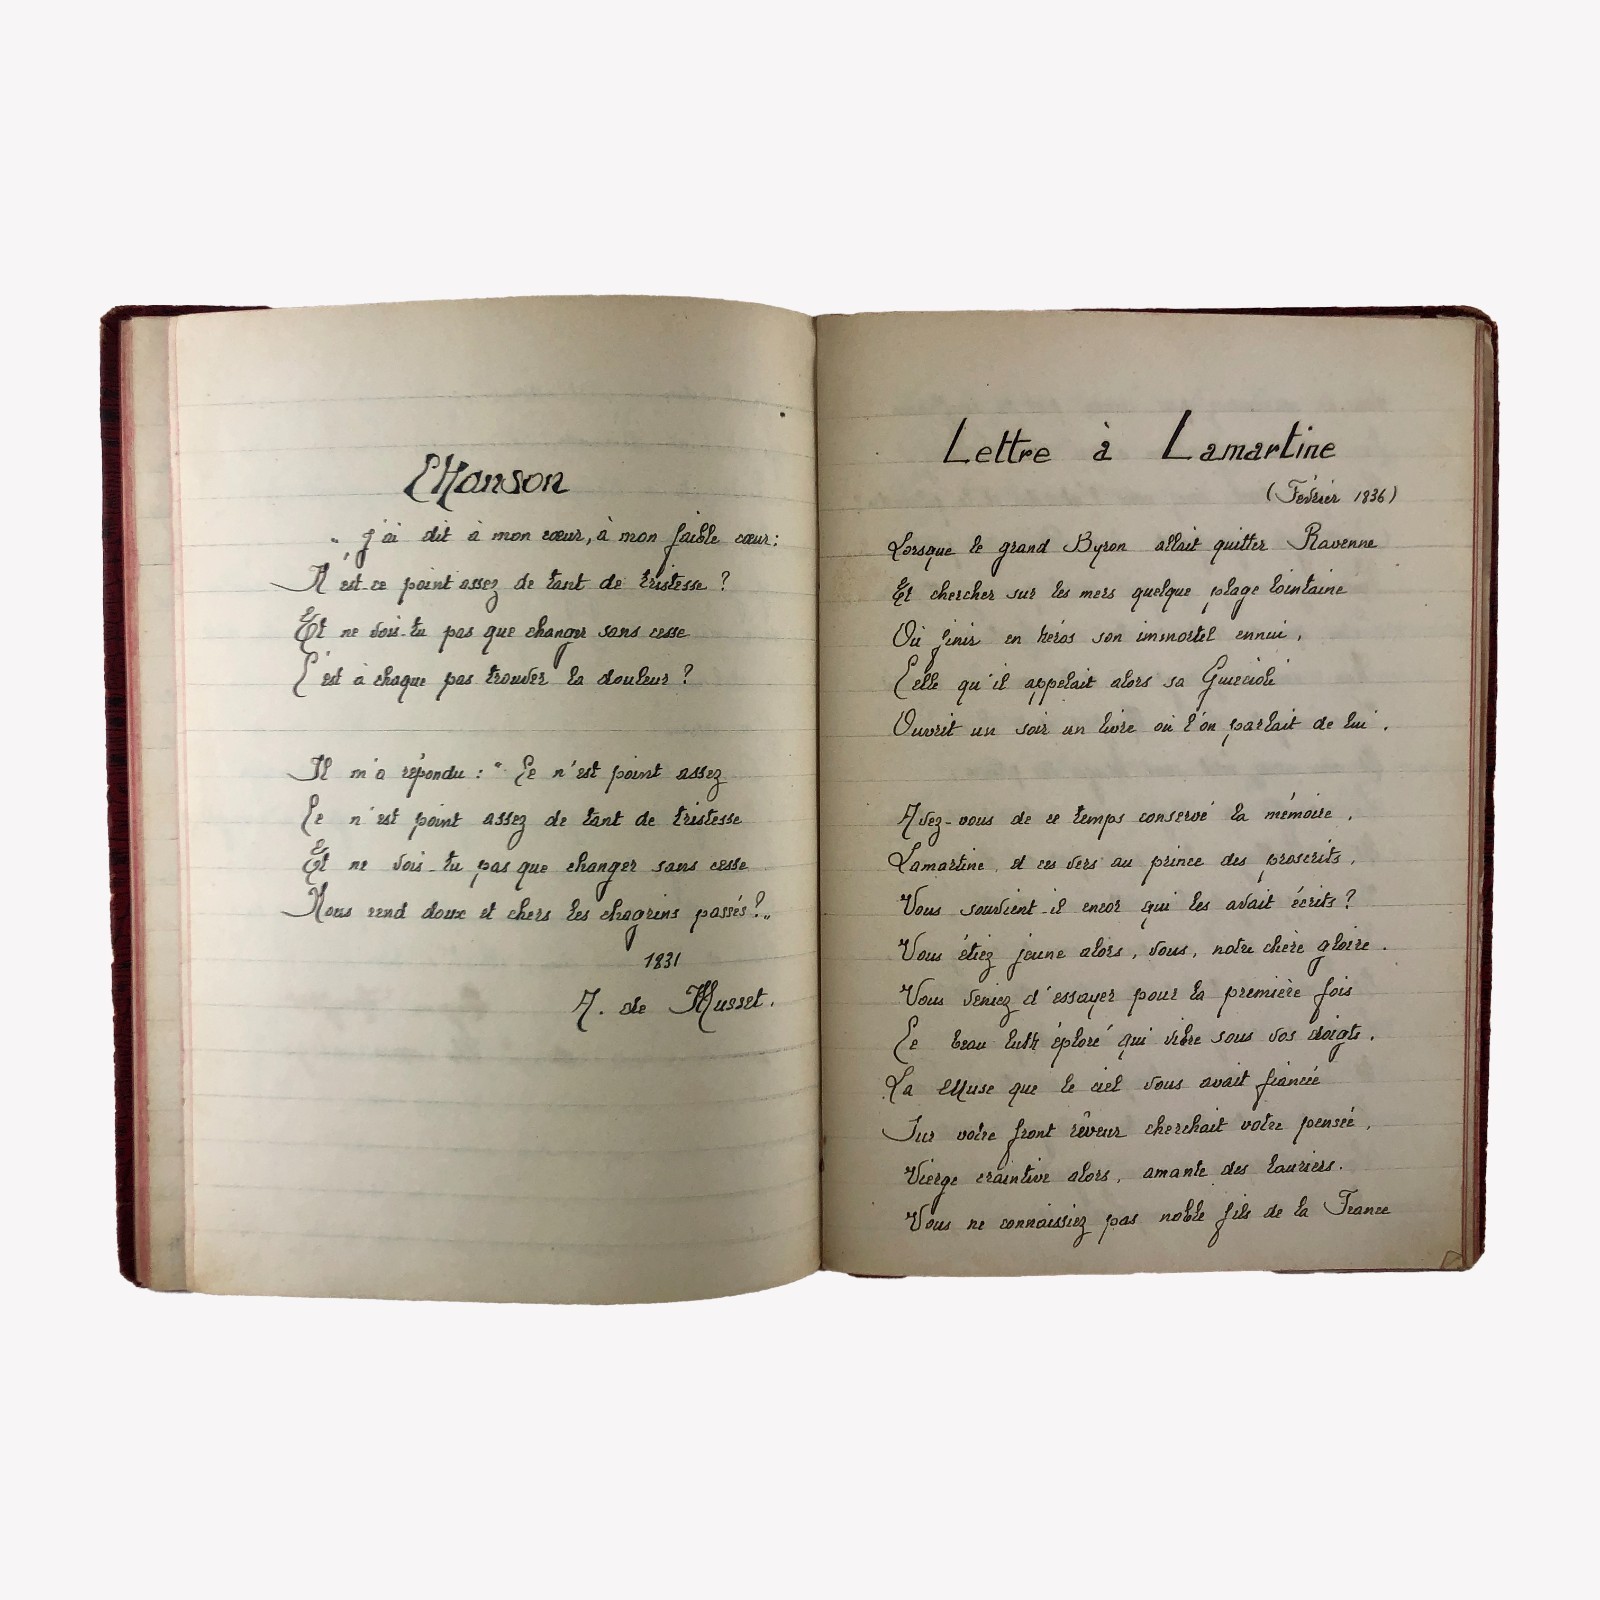 Chanson
" J'ai dit à mon cœur, à mon faible cœur:
N'est-ce point assez de tant de tristesse ?
Et ne vois-tu pas que changer sans cesse
C'est à chaque pas trouver la douleur ?
Il m'a répondu : " Ce n'est point assez
Ce n'est point assez de tant de tristesse
Et ne vois-tu pas que changer sans cesse
Nous rend doux et chers les chagrins passés ? "
1831
A. de Musset.
Lettre à Lamartine
(Février 1836)
Lorsque le grand Byron allait quitter Ravenne
Et chercher sur les mers quelque plage lointaine
Où finir en héros son immortel ennui,
Celle qu'il appelait alors sa Guiccioli
Ouvrit un soir un livre où l'on parlait de lui.
Avez-vous de ce temps conservé la mémoire,
Lamartine, et ces vers au prince des proscrits,
Vous souvient-il encor qui les avait écrits ?
Vous étiez jeune alors, vous, notre chère gloire.
Vous veniez d'essayer pour la première fois
Ce beau luth éploré qui vibre sous vos doigts.
La Muse que le ciel vous avait fiancée
Sur votre front rêveur cherchait votre pensée,
Vierge craintive alors, amante des lauriers.
Vous ne connaissiez pas noble fils de la France